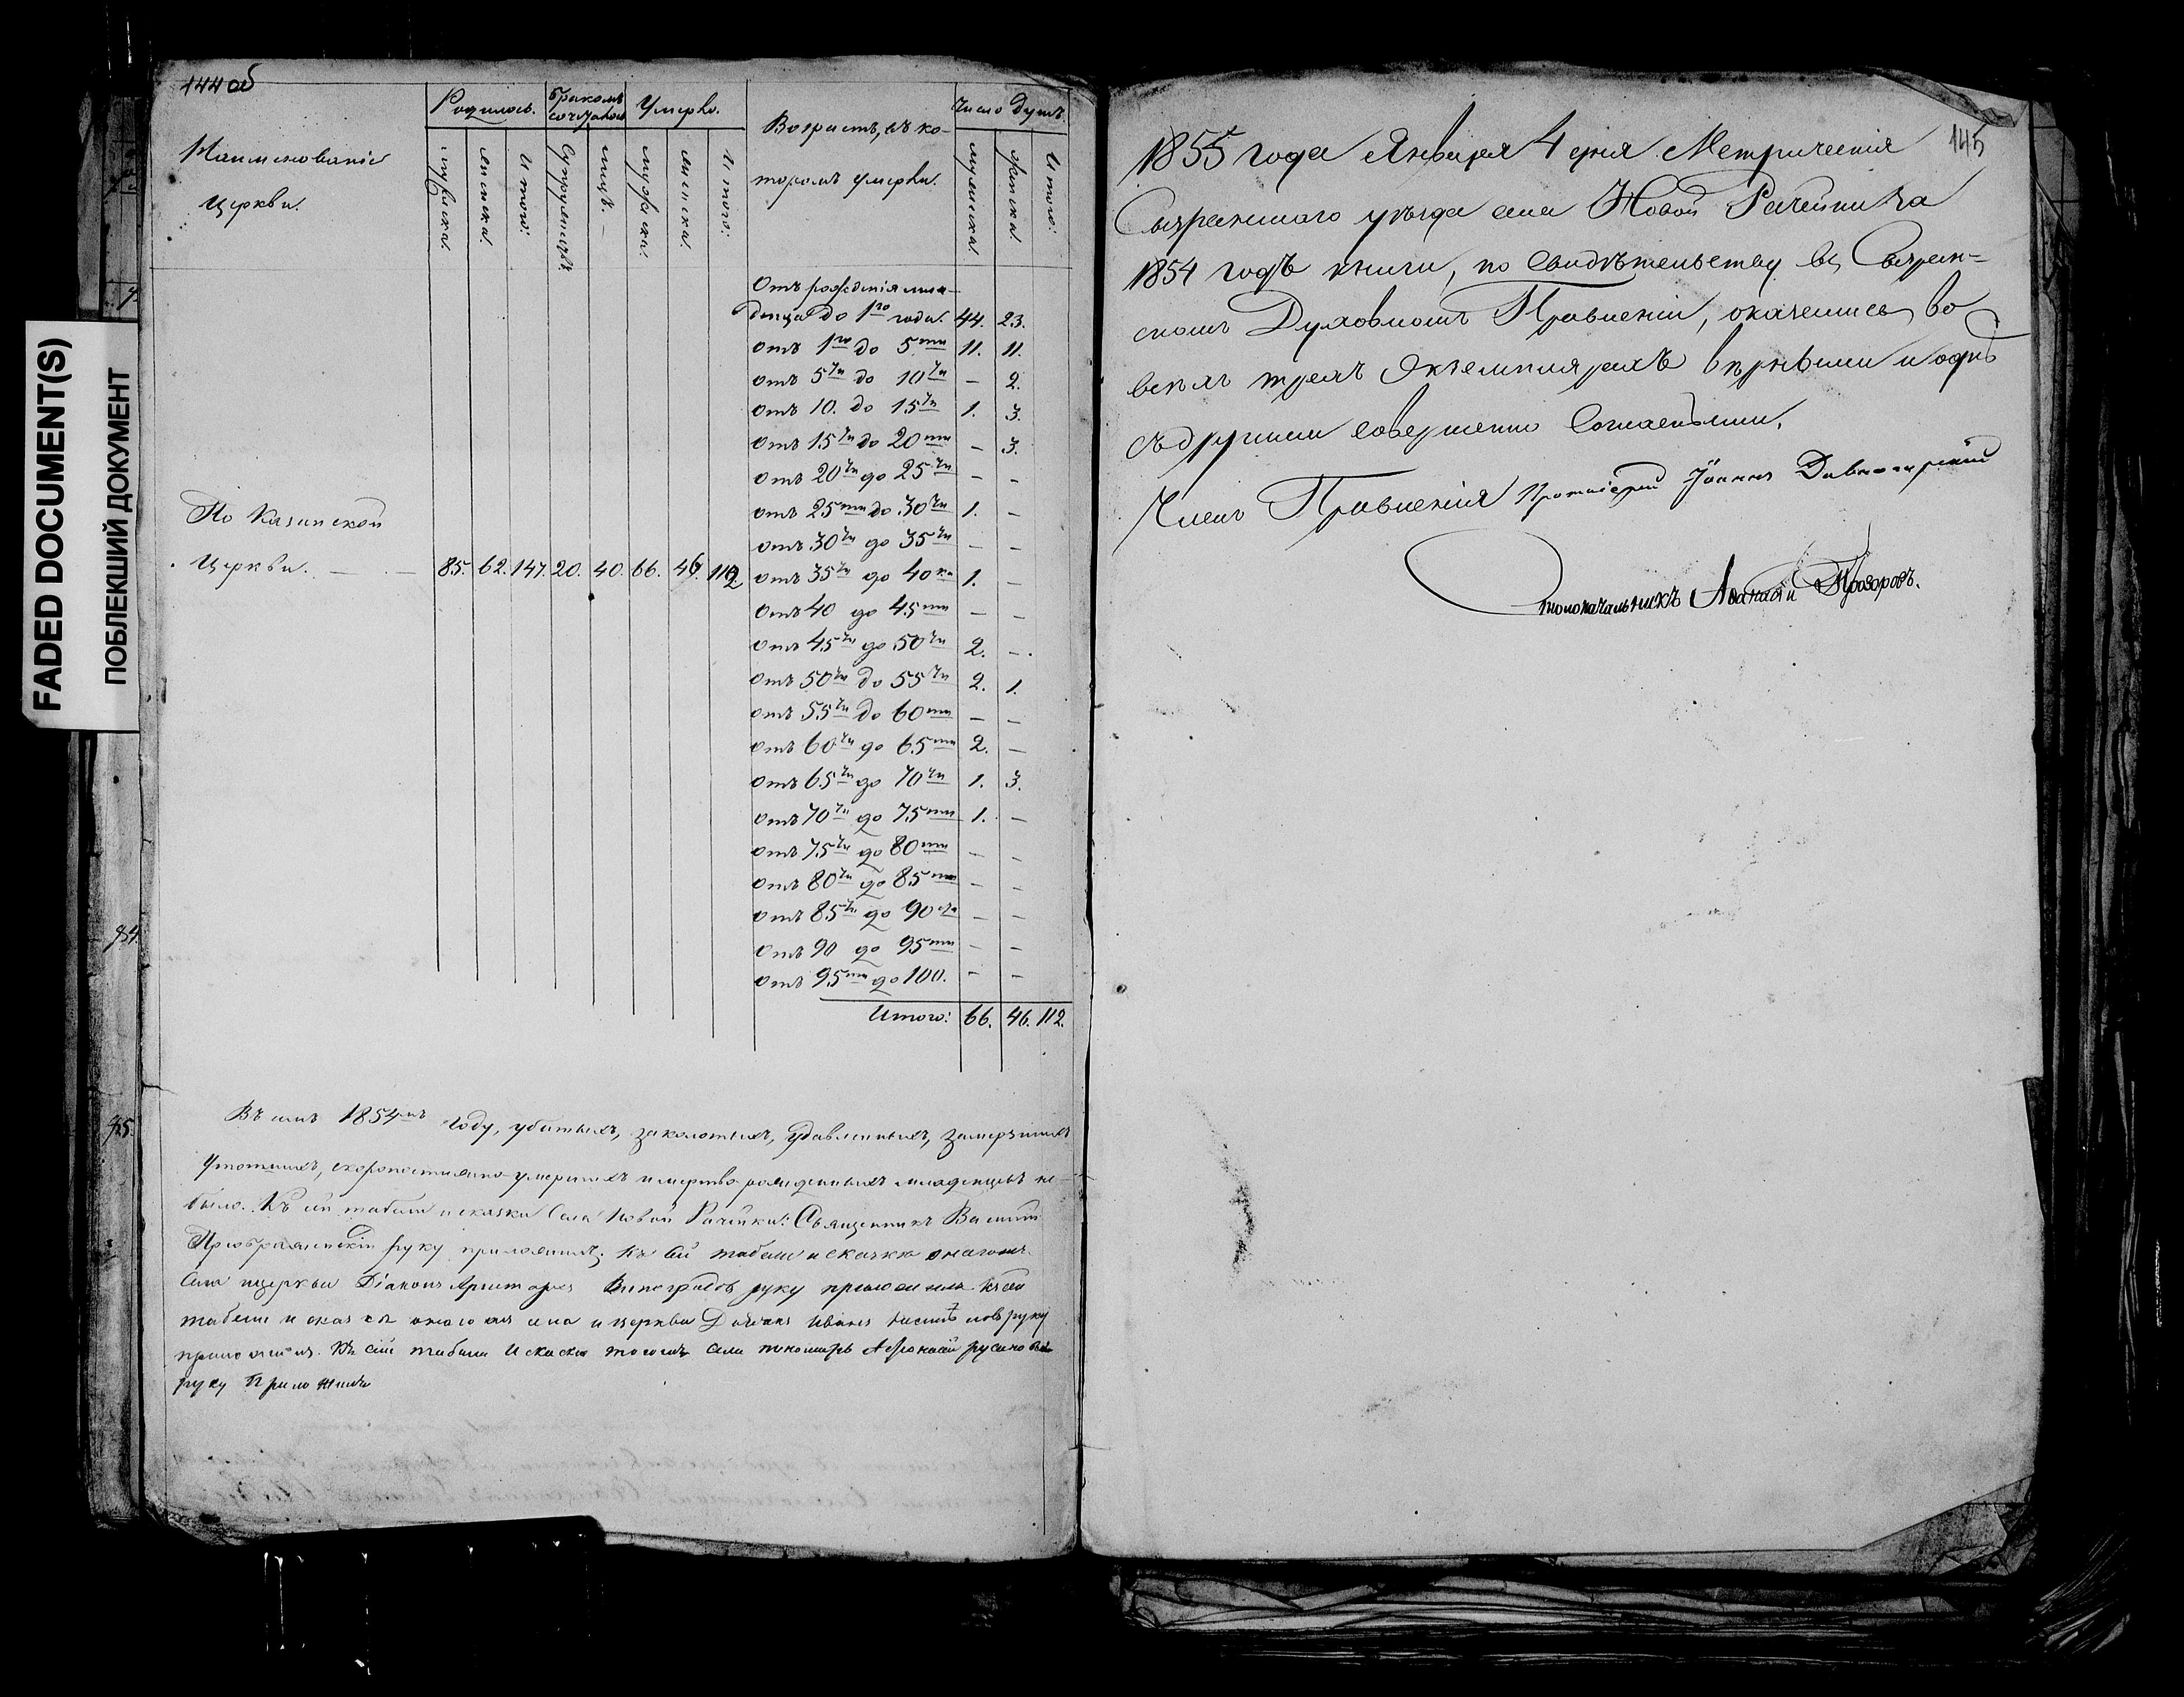 FADED DOCUMENT(S)
ПОБЛЕКШИЙ ДОКУМЕНТ
144 об
Наименованіе
Церкви.
Родилось.
Бракомъ сочетанов
Умерло.
Возрастъ, въ ко-
торомъ умерли.
Число душъ
мужеска.
женска.
Итого:
Супружествъ.
лицъ.
мужеска.
женска.
Итого:
мужеска.
женска.
Итого:
Отъ рожденія мла-
денца до 1го года. 44. 23.
отъ 1го до 5ти 11. 11.
отъ 5ти до 10ти – 2.
отъ 10. до 15ти 1. 3.
отъ 15ти до 20ти – 3.
отъ 20ти до 25ти – –
отъ 25ти до 30ти 1. –
отъ 30ти до 35ти – –
По Казанской
Церкви. — — 85. 62. 147. 20. 40. 66. 46. 112 отъ 35ти до 40ка 1. –
отъ 40 до 45ти – –
отъ 45ти до 50ти 2. –.
отъ 50ти до 55ти 2. 1.
отъ 55ти до 60ти – –
отъ 60ти до 65ти 2. –
отъ 65ти до 70ти 1. 3.
отъ 70ти до 75ти 1. –
отъ 75ти до 80ти – –
отъ 80ти до 85ти – –
отъ 85ти до 90та – –
отъ 90 до 95ти – –
отъ 95ти до 100. – –
Итого: 66. 46. 112.
Въ семъ 1854мъ году, убитыхъ, заколотыхъ, удавленныхъ, замерзшихъ
утопшихъ, скоропостижно-умершихъ и мертво рожденныхъ младенцевъ не-
было. Къ сей табели и сказки Села Новой Рачейки: Священникъ Василій
Преображенскій руку приложилъ; къ сей табели и сказки онагожъ
Села и церкви Діаконъ Аристархъ Виноградовъ руку приложилъ къ сей
табели и сказкѣ онагожъ села и церкви Дьячекъ Иванъ руку
приложилъ. Къ сей табели и сказки тогожъ села пономарь Афонасій Русановъ
руку Приложилъ
145
1855 года Января 4 дня Метрическія
Сызранскаго уѣзда села Новой Рачейки за
1854 годъ книги, по свидѣтельству въ Сызран-
скомъ Духовномъ Правленіи, оказались во
всѣхъ трехъ экземплярахъ вѣрными и однѣ
съ другими совершенно согласными.
Членъ Правленія Протоіерей Іоаннъ
Столоначальникъ Аѳанасій Прозоровъ.